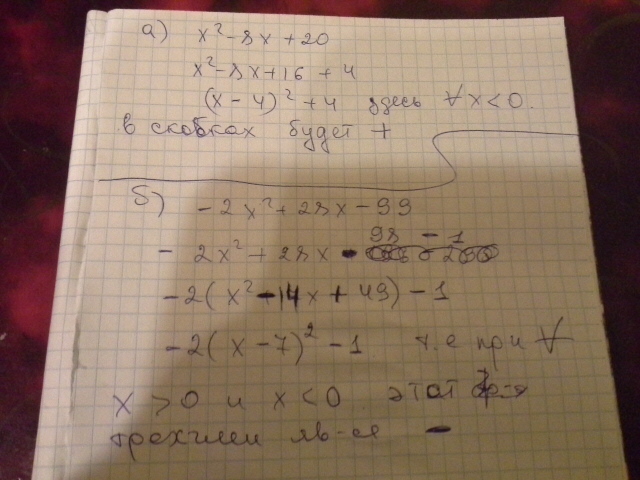 а) x² - 8x + 20
x² - 8x + 16 + 4
(x - 4)² + 4 здесь ∀ x < 0.
в скобках будет +
б) - 2x² + 28x - 99
- 2x² + 28x - 98 - 1
-2( x² - 14x + 49) - 1
-2( x - 7)² - 1 т.е при ∀
x > 0 и x < 0 этот
трехчлен яв-ся -